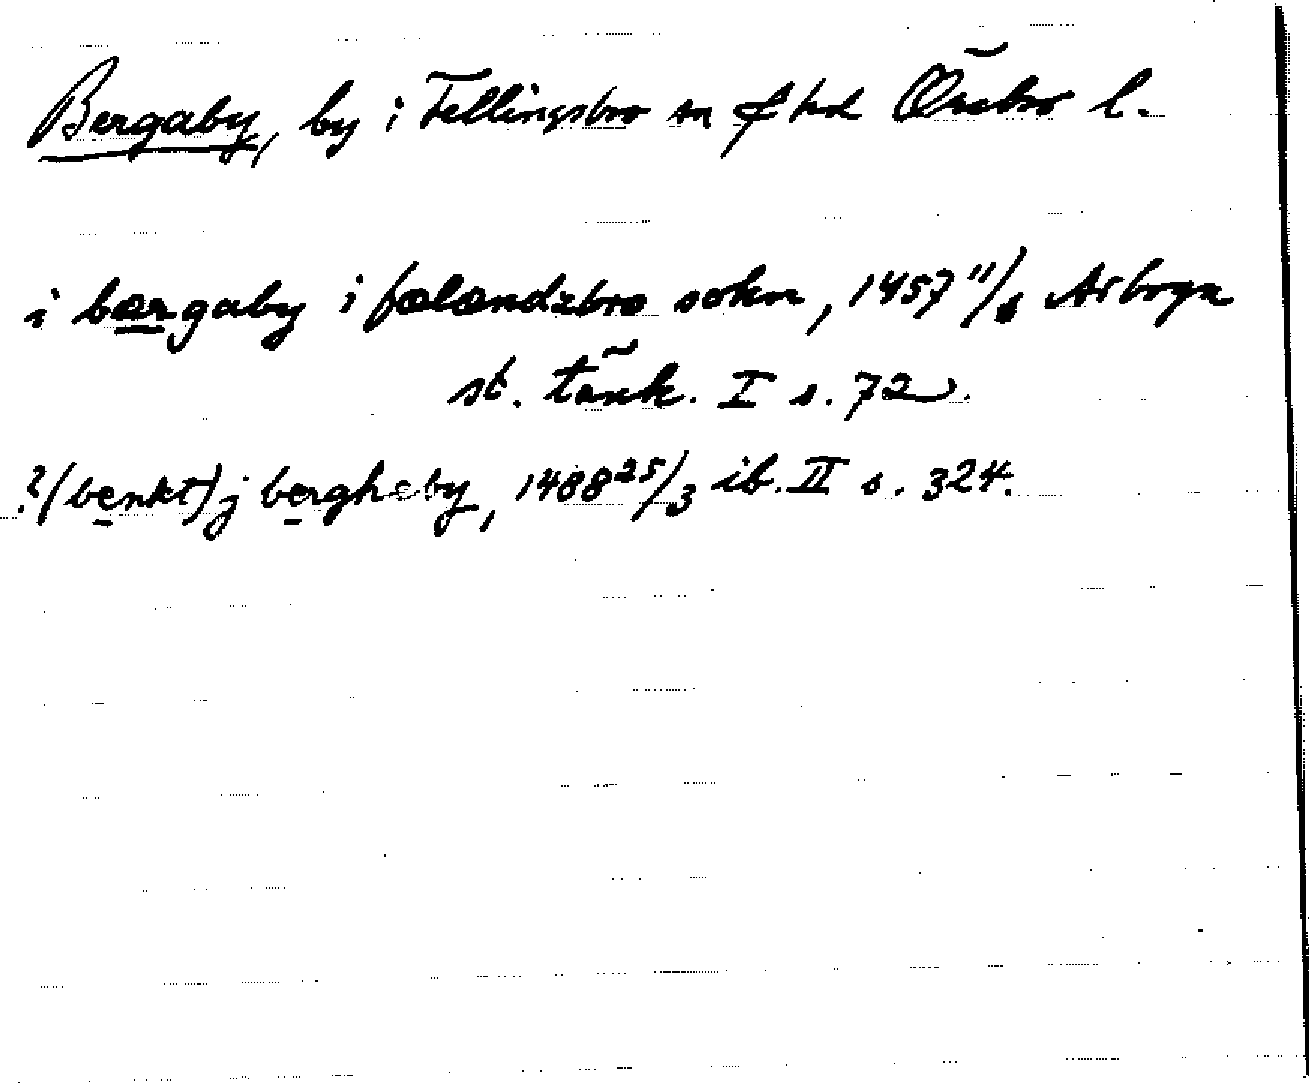 Bergaby, by i Fellingsbro sn f hd Örebro l.
i bærgaby i fælændzbro sokn, 1457 11/4 Arboga
st. tänk. I s. 72.
?(benkt) j bergheby, 1488 25/3 ib. II s. 324.